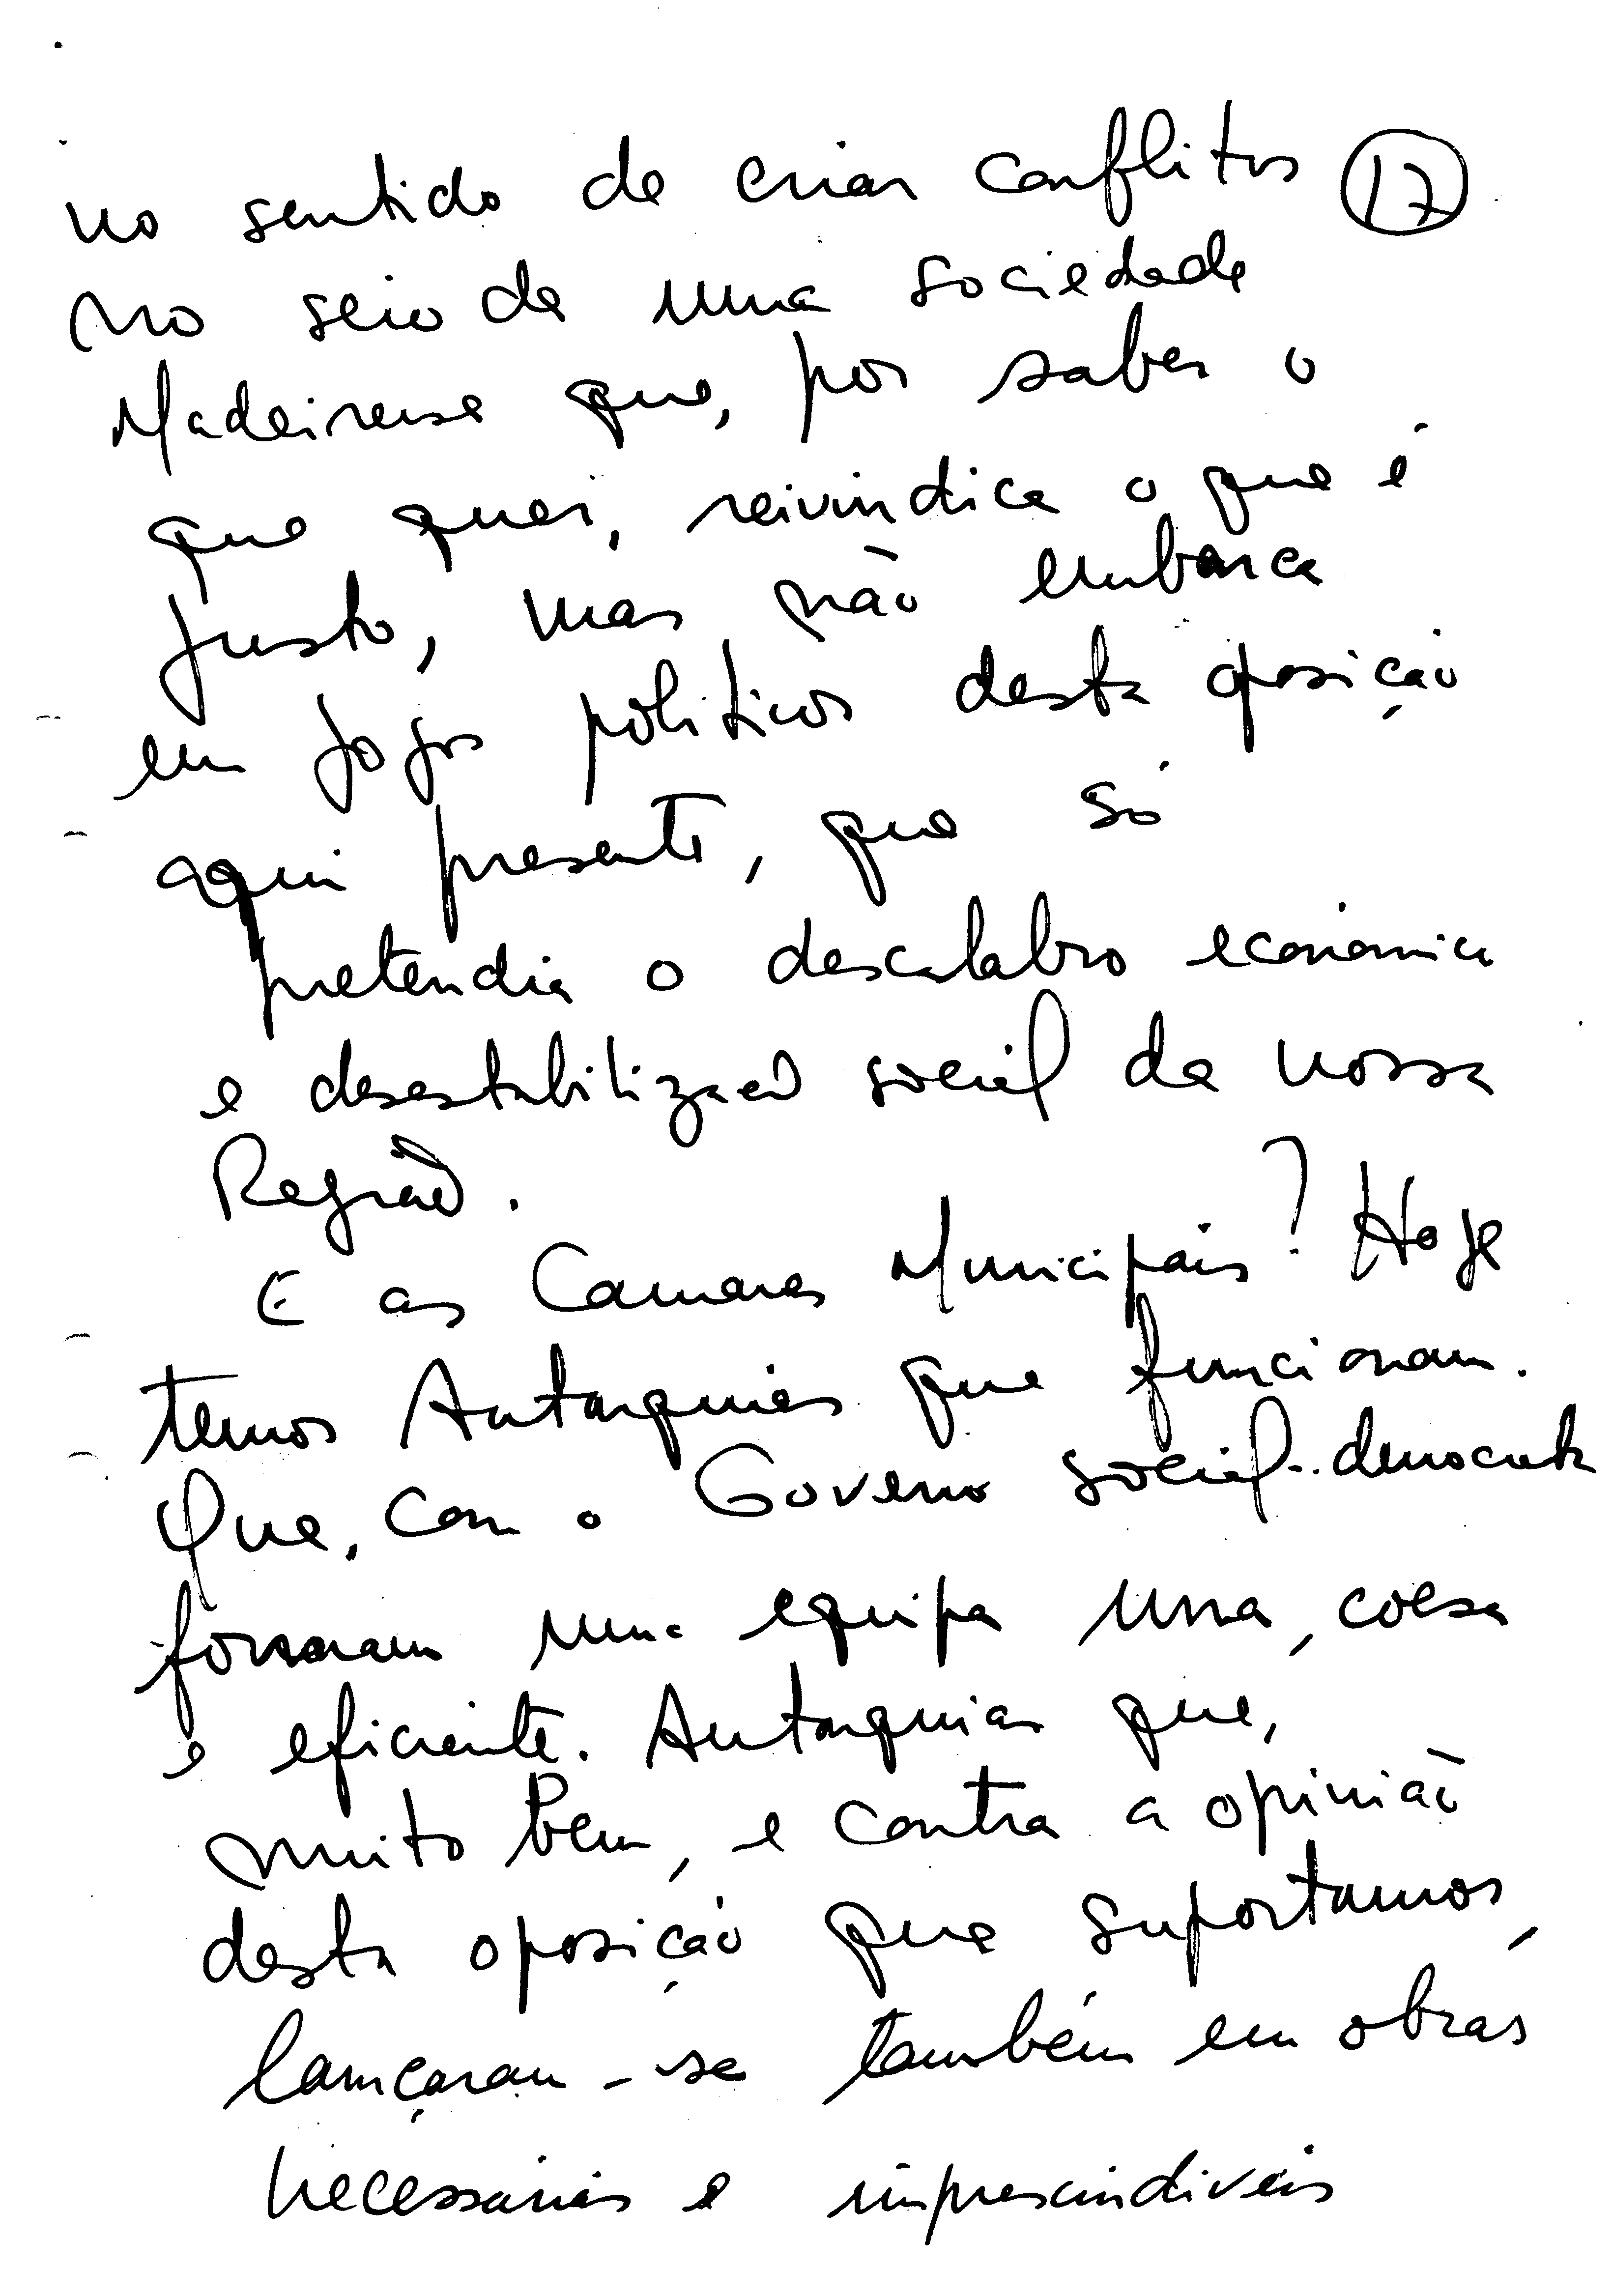 no sentido de criar conflitos 17
no seio de uma sociedade
Madeirense que, por saber o
que quer, reivindica o que é
justo, mas não embarca
em jogos politicos desta oposição
aqui presente, que só
pretendia o descalabro economico
e desestabilização social da nossa
Região.
E as Camaras Municipais? Hoje
temos Autarquias que funcionam.
Que, com o Governo social-democrata
formaram uma equipa una, coesa
e eficiente. Autarquias que,
muito bem, e contra a opinião
desta oposição que suportamos,
lançaram-se também em obras
necessárias e imprescindiveis